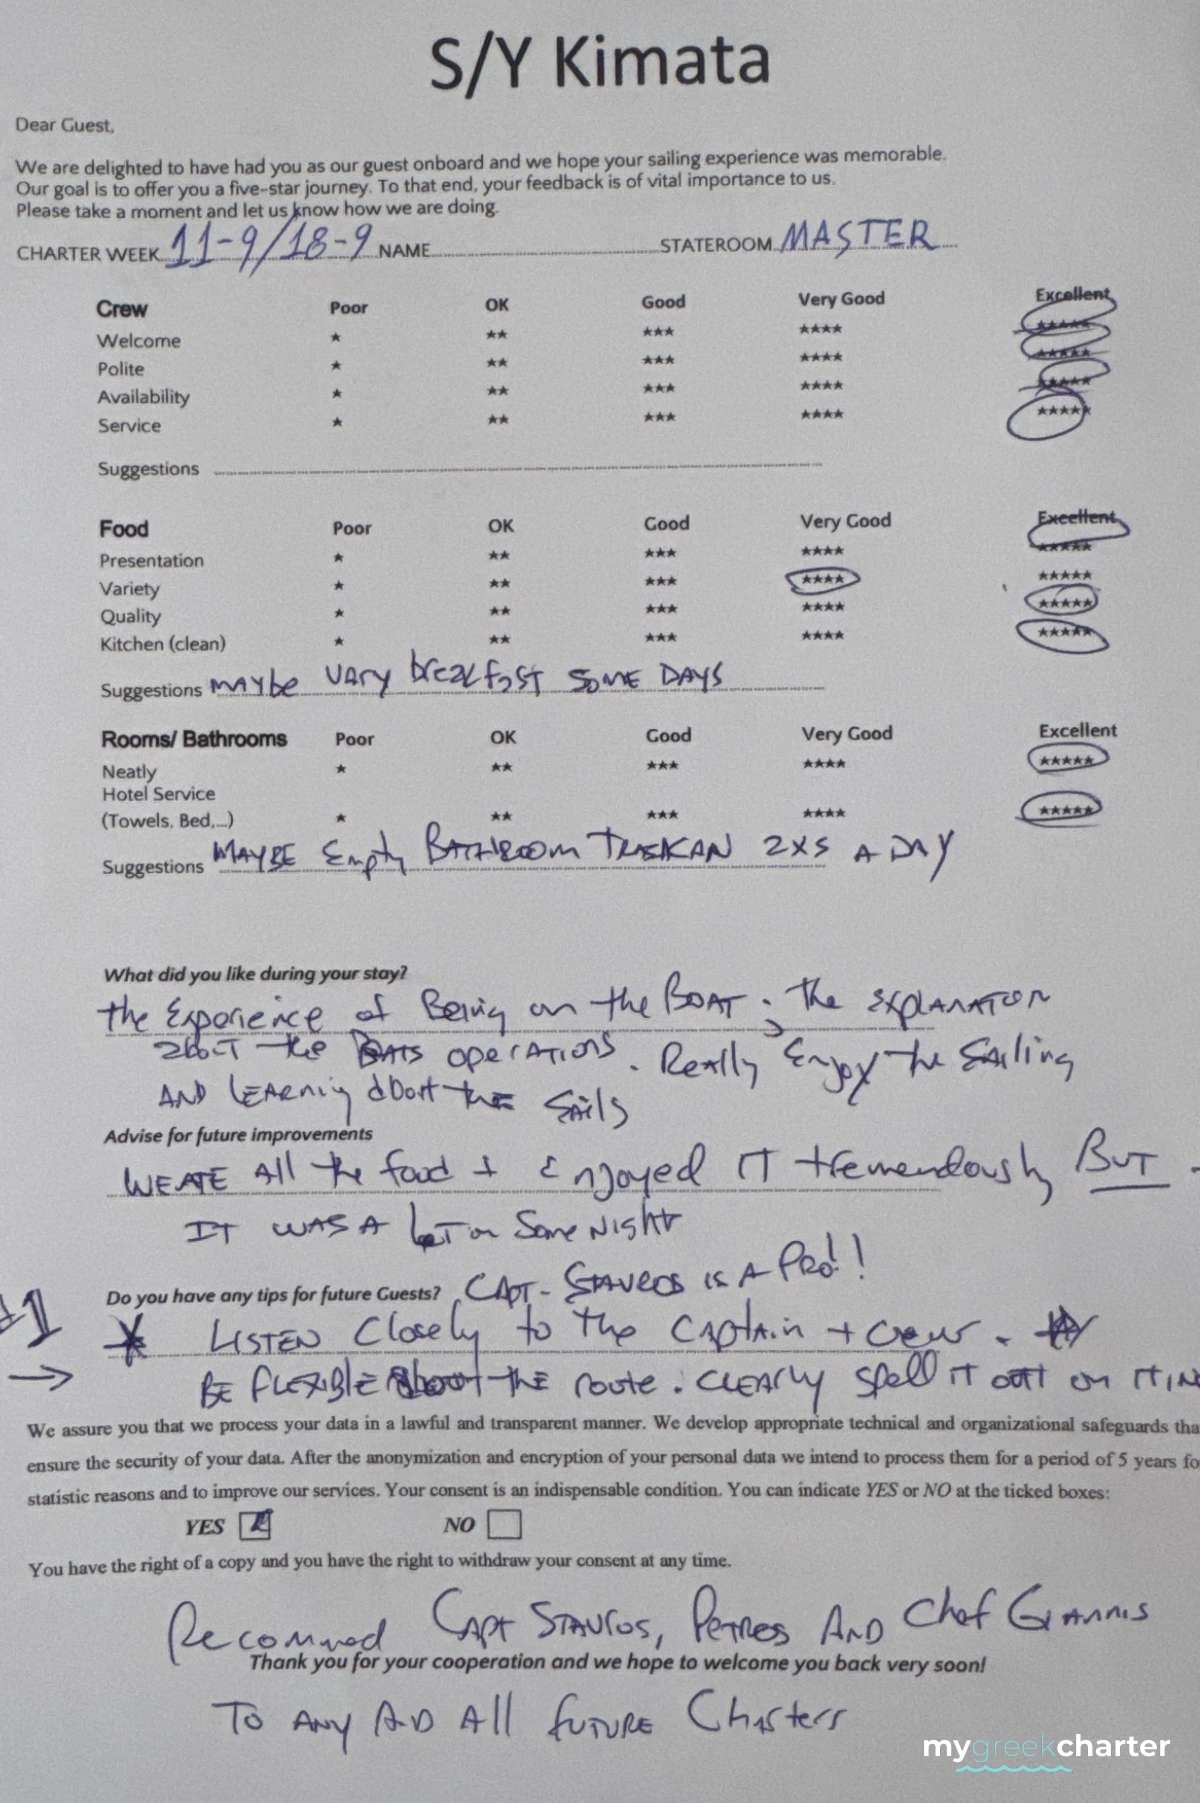 S/Y Kimata
Dear Guest,
We are delighted to have had you as our guest onboard and we hope your sailing experience was memorable.
Our goal is to offer you a five-star journey. To that end, your feedback is of vital importance to us.
Please take a moment and let us know how we are doing.
CHARTER WEEK 11-9/18-9 NAME STATEROOM MASTER
Crew Poor OK Good Very Good Excellent
Welcome ★ ★★ ★★★ ★★★★ ★★★★★
Polite ★ ★★ ★★★ ★★★★ ★★★★★
Availability ★ ★★ ★★★ ★★★★ ★★★★★
Service ★ ★★ ★★★ ★★★★ ★★★★★
Suggestions
Food Poor OK Good Very Good Excellent
Presentation ★ ★★ ★★★ ★★★★ ★★★★★
Variety ★ ★★ ★★★ ★★★★ ★★★★★
Quality ★ ★★ ★★★ ★★★★ ★★★★★
Kitchen (clean) ★ ★★ ★★★ ★★★★ ★★★★★
Suggestions MAYbe VARY breakfast SOME DAYS
Rooms/ Bathrooms Poor OK Good Very Good Excellent
Neatly ★ ★★ ★★★ ★★★★ ★★★★★
Hotel Service
(Towels, Bed,...) ★ ★★ ★★★ ★★★★ ★★★★★
Suggestions MAYBE Empty BATHROOM TRASHCAN 2XS A DAY
What did you like during your stay?
the Experience of Being on the BOAT. The EXPLANATION
about the BOATS OPERATIONS. Really Enjoy the SAiling
AND LEARning about the SAils
Advise for future improvements
WE ATE All the food + Enjoyed IT tremendously BUT -
IT WAS A LOT on Some Night
Do you have any tips for future Guests? CAPT- STAVROS IS A PRO!!
#1 * LISTEN Closely to the CAptain + Crew. *
→ BE FLEXIBLE About the route. CLEARly spell IT OUT on ITIN
We assure you that we process your data in a lawful and transparent manner. We develop appropriate technical and organizational safeguards tha
ensure the security of your data. After the anonymization and encryption of your personal data we intend to process them for a period of 5 years fo
statistic reasons and to improve our services. Your consent is an indispensable condition. You can indicate YES or NO at the ticked boxes:
YES NO
You have the right of a copy and you have the right to withdraw your consent at any time.
Recommed CAPT STAVROS, PETROS AND Chef GIANNIS
Thank you for your cooperation and we hope to welcome you back very soon!
TO ANY AND All FUTURE Charters
mygreekcharter